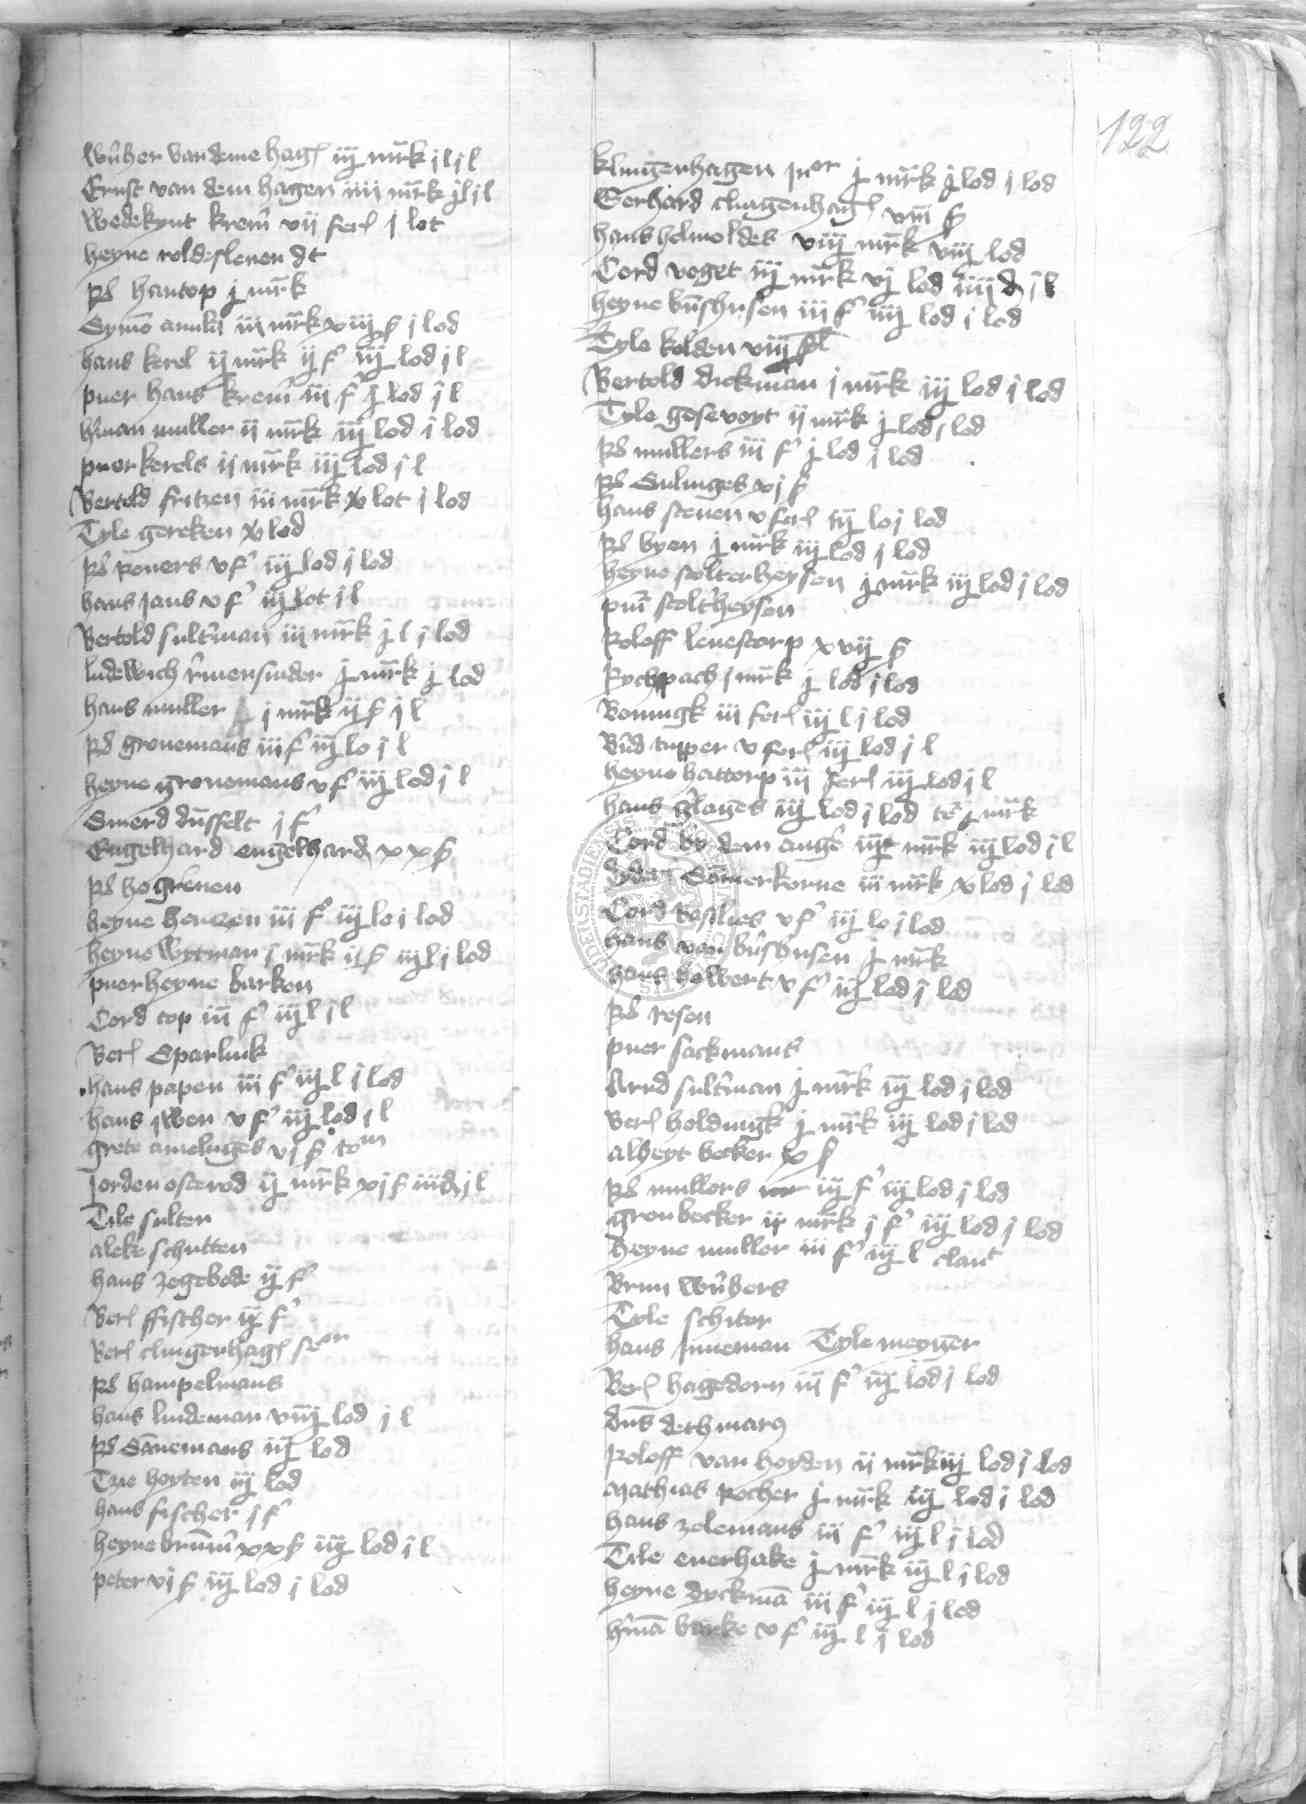 122
wucher van deme hagen iij mrk j l j l
Ernst van dem hagen iiij mrk j l j l
Wedekynt krem vij ferl j lot
heyne roldesleuen dt
Rel hantop j mrk
Symon iij mrk xiij s j lod
hans kerel ij mrk ij f iij lod j l
puer hans krem iij f j lod j l
herman muller ij mrk iij lod j lod
puer kerels ij mrk iij lod j l
Bertold fritzen iij mrk x lot j lod
Tyle gereken x lod
Rel reuers v f iij lod j lod
hans jans v f iij lot j l
Bertold sulterman iij mrk j l j lod
ludewich j mrk j lod
hans muller j mrk ij s j l
Rel gronemans iij f iij lo j l
heyne gronemans v f iij lod j l
Smerd dusselt j f
Engelhard engelhard xx s
Rel hogreuen
heyne henzen iij f iij lo j lod
heyne wytman j mrk ij s iij l j lod
puer heyne barken
Cord top iij f iij l j l
Berl Sparlink
hans papen iij f iij l j lod
hans jwen v f iij lod j l
grete amelinges vj s
Jorden osterod ij mrk xj s iiij d j l
Tile sulten
aleke schutten
hans zegebode ij f
Berl ffischer ij f
Berl clingerhagen
Rel hampelmans
hans lindeman viij lod j l
Rel Sanemans iij lod
hoyten iij lod
hans fischer j f
heyne xx s iij lod j l
peter vj s iij lod j lod
klingenhagen j mrk j lod j lod
Gerhard clingenhagen viij s
hans helmoldes viij mrk viij lod
Cord voget iij mrk vj lod iiij d j l
heyne bushusen iij f iij lod j lod
Tyle kolden viij
Bertold dickman j mrk iij lod j lod
Tyle gesevoyt ij mrk j lod j lod
Rel mullers iij f j lod j lod
Rel Sulinges xj s
hans steuen v ferl iij lo j lod
Rel byen j mrk iij lod j lod
heyne stolterheysen j mrk iij lod j lod
puer stolterheysen
Roloff leuestorp xvij s
Rychpach j mrk j lod j lod
Bonnigk iij ferl iij l j lod
tupper v ferl iij lod j l
heyne hattorp iij ferl iij lod j l
hans glages iij lod j lod j mrk
Cord by dem anger mrk iij lod j l
Somerkorne iij mrk x lod j lod
Cord Basilies v f iij lo j lod
hans van bushusen j mrk
hans kolwert v f iij lod j lod
Rel resen
puer sackmans
Arnd sulterman j mrk iij lod j lod
Berl holdingk j mrk iij lod j lod
alheyt becker x s
Rel mullers iij f iij lod j lod
gron becker ij mrk j f iij lod j lod
heyne muller iij f iij l
Brun wuchers
Tyle schiter
hans Jnneman Tyle meyger
Berl hagedorn iij f iij lod j lod
dns dethmarus
Roloff van hoyden ij mrk iij lod j lod
Mathias Rocher j mrk iij lod j lod
hans zelemans iij f iij l j lod
Tile euerhake j mrk iij l j lod
heyne dyckman iij f iij l j lod
herman barke v f iij l j lod